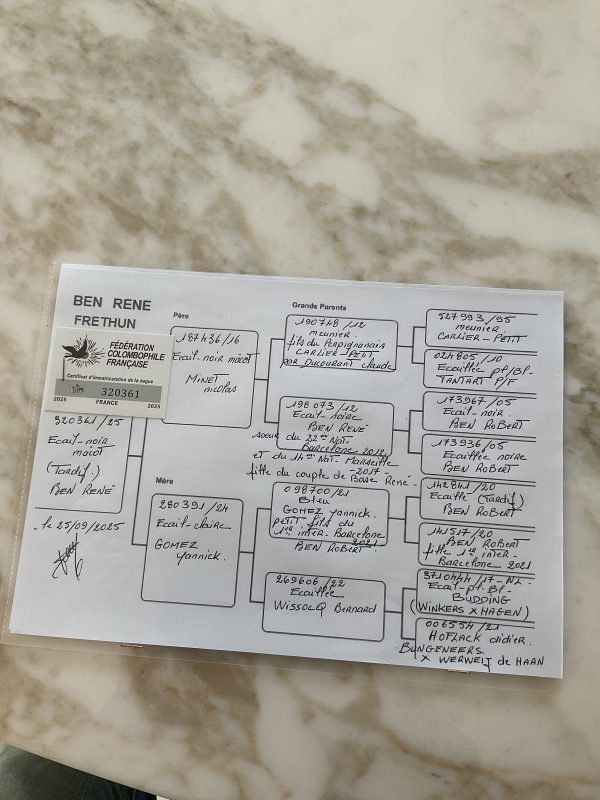 BEN RENE
FRETHUN
FÉDÉRATION
COLOMBOPHILE
FRANÇAISE
Certificat d'immatriculation de la bague
320361
2025 FRANCE 2025
320361/25
Ecail-noir
macot
(Tardif)
BEN RENÉ
le 25/09/2025
Père
187436/16
Ecail-noir macot
MINET
nicolas
Mère
280391/24
Ecail-claire
GOMEZ
Yannick.
Grands Parents
190748/12
meunier.
fils du Perpignanais
CARLIER-PETIT
par DUCOURANT claude
198073/12
Ecail-noire
BEN RENÉ
soeur du 22eme Nat-
Barcelone 2012
et du 14eme Nat-Marseille
-2017-
fille du couple de Base René-
098700/21
Bleu
GOMEZ Yannick.
petit-fils du
1er inter-Barcelone
2021
BEN ROBERT
269606/22
Ecaillée
WISSOCQ Bernard
527993/95
meunier.
CARLIER-PETIT
024805/10
Ecaillée pf/Bl-
TANTART P/F
173967/05
Ecail-noir.
BEN ROBERT
173936/05
Ecaillée noire
BEN ROBERT
142841/20
Ecaillé (Tardif)
BEN ROBERT
141517/20
BEN ROBERT
fille 1er inter-
Barcelone 2021
3710444/17-NL.
Ecail-pf.Bl-
BUDDING
(WINKERS X HAGEN)
006554/21
HOFLACK didier.
BUNGENEERS
X WERWEIJ de HAAN